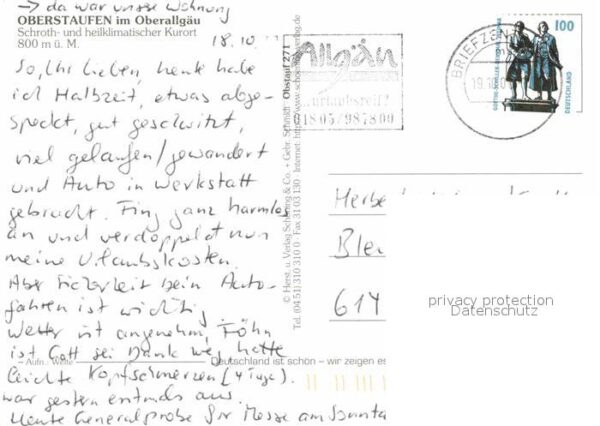 → da war unsre Wohnung
OBERSTAUFEN im Oberallgäu
Schroth- und heilklimatischer Kurort
800 m ü. M.
18.10.
So, Ihr Lieben, heute habe
ich Halbzeit, etwas abge-
speckt, gut geschwitzt,
viel gelaufen/gewandert
und Auto in Werkstatt
gebracht. Fing ganz harmlos
an und verdoppelt nun
meine Urlaubskosten.
Aber Sicherheit beim Auto-
fahren ist wichtig.
Wetter ist angenehm, Föhn
ist Gott sei Dank weg, hatte
leichte Kopfschmerzen (4 Tage).
war gestern erstmals aus.
Heute Generalprobe für Messe am Sonnta
Deutschland ist schön – wir zeigen es
© Herst. u. Verlag Schöning & Co. + Gebr. Schmidt
Obstauf 271
Tel. (04 51) 310 310 0 · Fax 31 03 130 · Internet:
Allgäu
urlaubsreif?
01805/987800
BRIEFZEN
19.10.0
100
DEUTSCHLAND
Herbe
Blei
614
privacy protection
Datenschutz